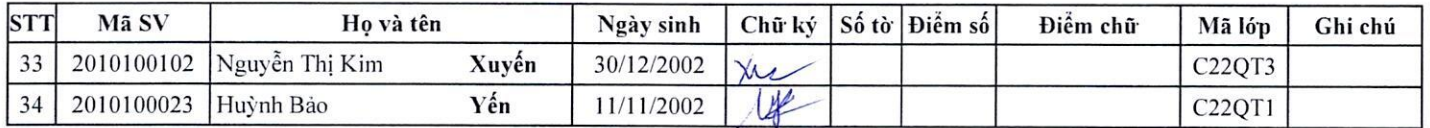 STT Mã SV Họ và tên Ngày sinh Chữ ký Số tờ Điểm số Điểm chữ Mã lớp Ghi chú
33 2010100102 Nguyễn Thị Kim Xuyến 30/12/2002 C22QT3
34 2010100023 Huỳnh Bảo Yến 11/11/2002 C22QT1